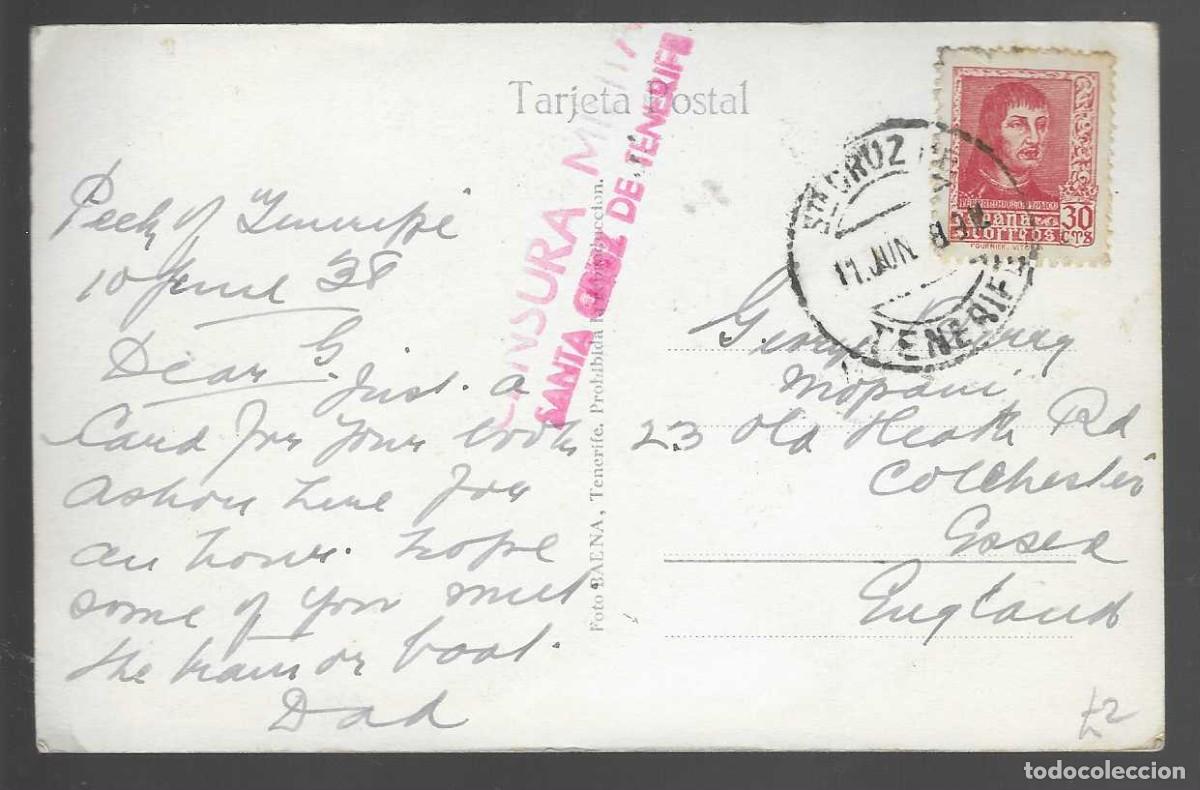 Tarjeta Postal
CENSURA MILITA
SANTA CRUZ DE TENERIFE
STA CRUZ DE
11.JUN.
TENERIFE
FERNANDO EL CATOLICO
España
Correos
30
CTS
FOURNIER. VITORIA
Peek of Tenerife
10 June 38
Dear G. Just a
Card for your book
Ashore here for
an hour. hope
some of you meet
the train or boat.
Dad
Foto BAENA, Tenerife. Prohibida la reproduccion.
George
Mopani
23 Old Heath Rd
Colchester
Essex
England
£2
todocoleccion